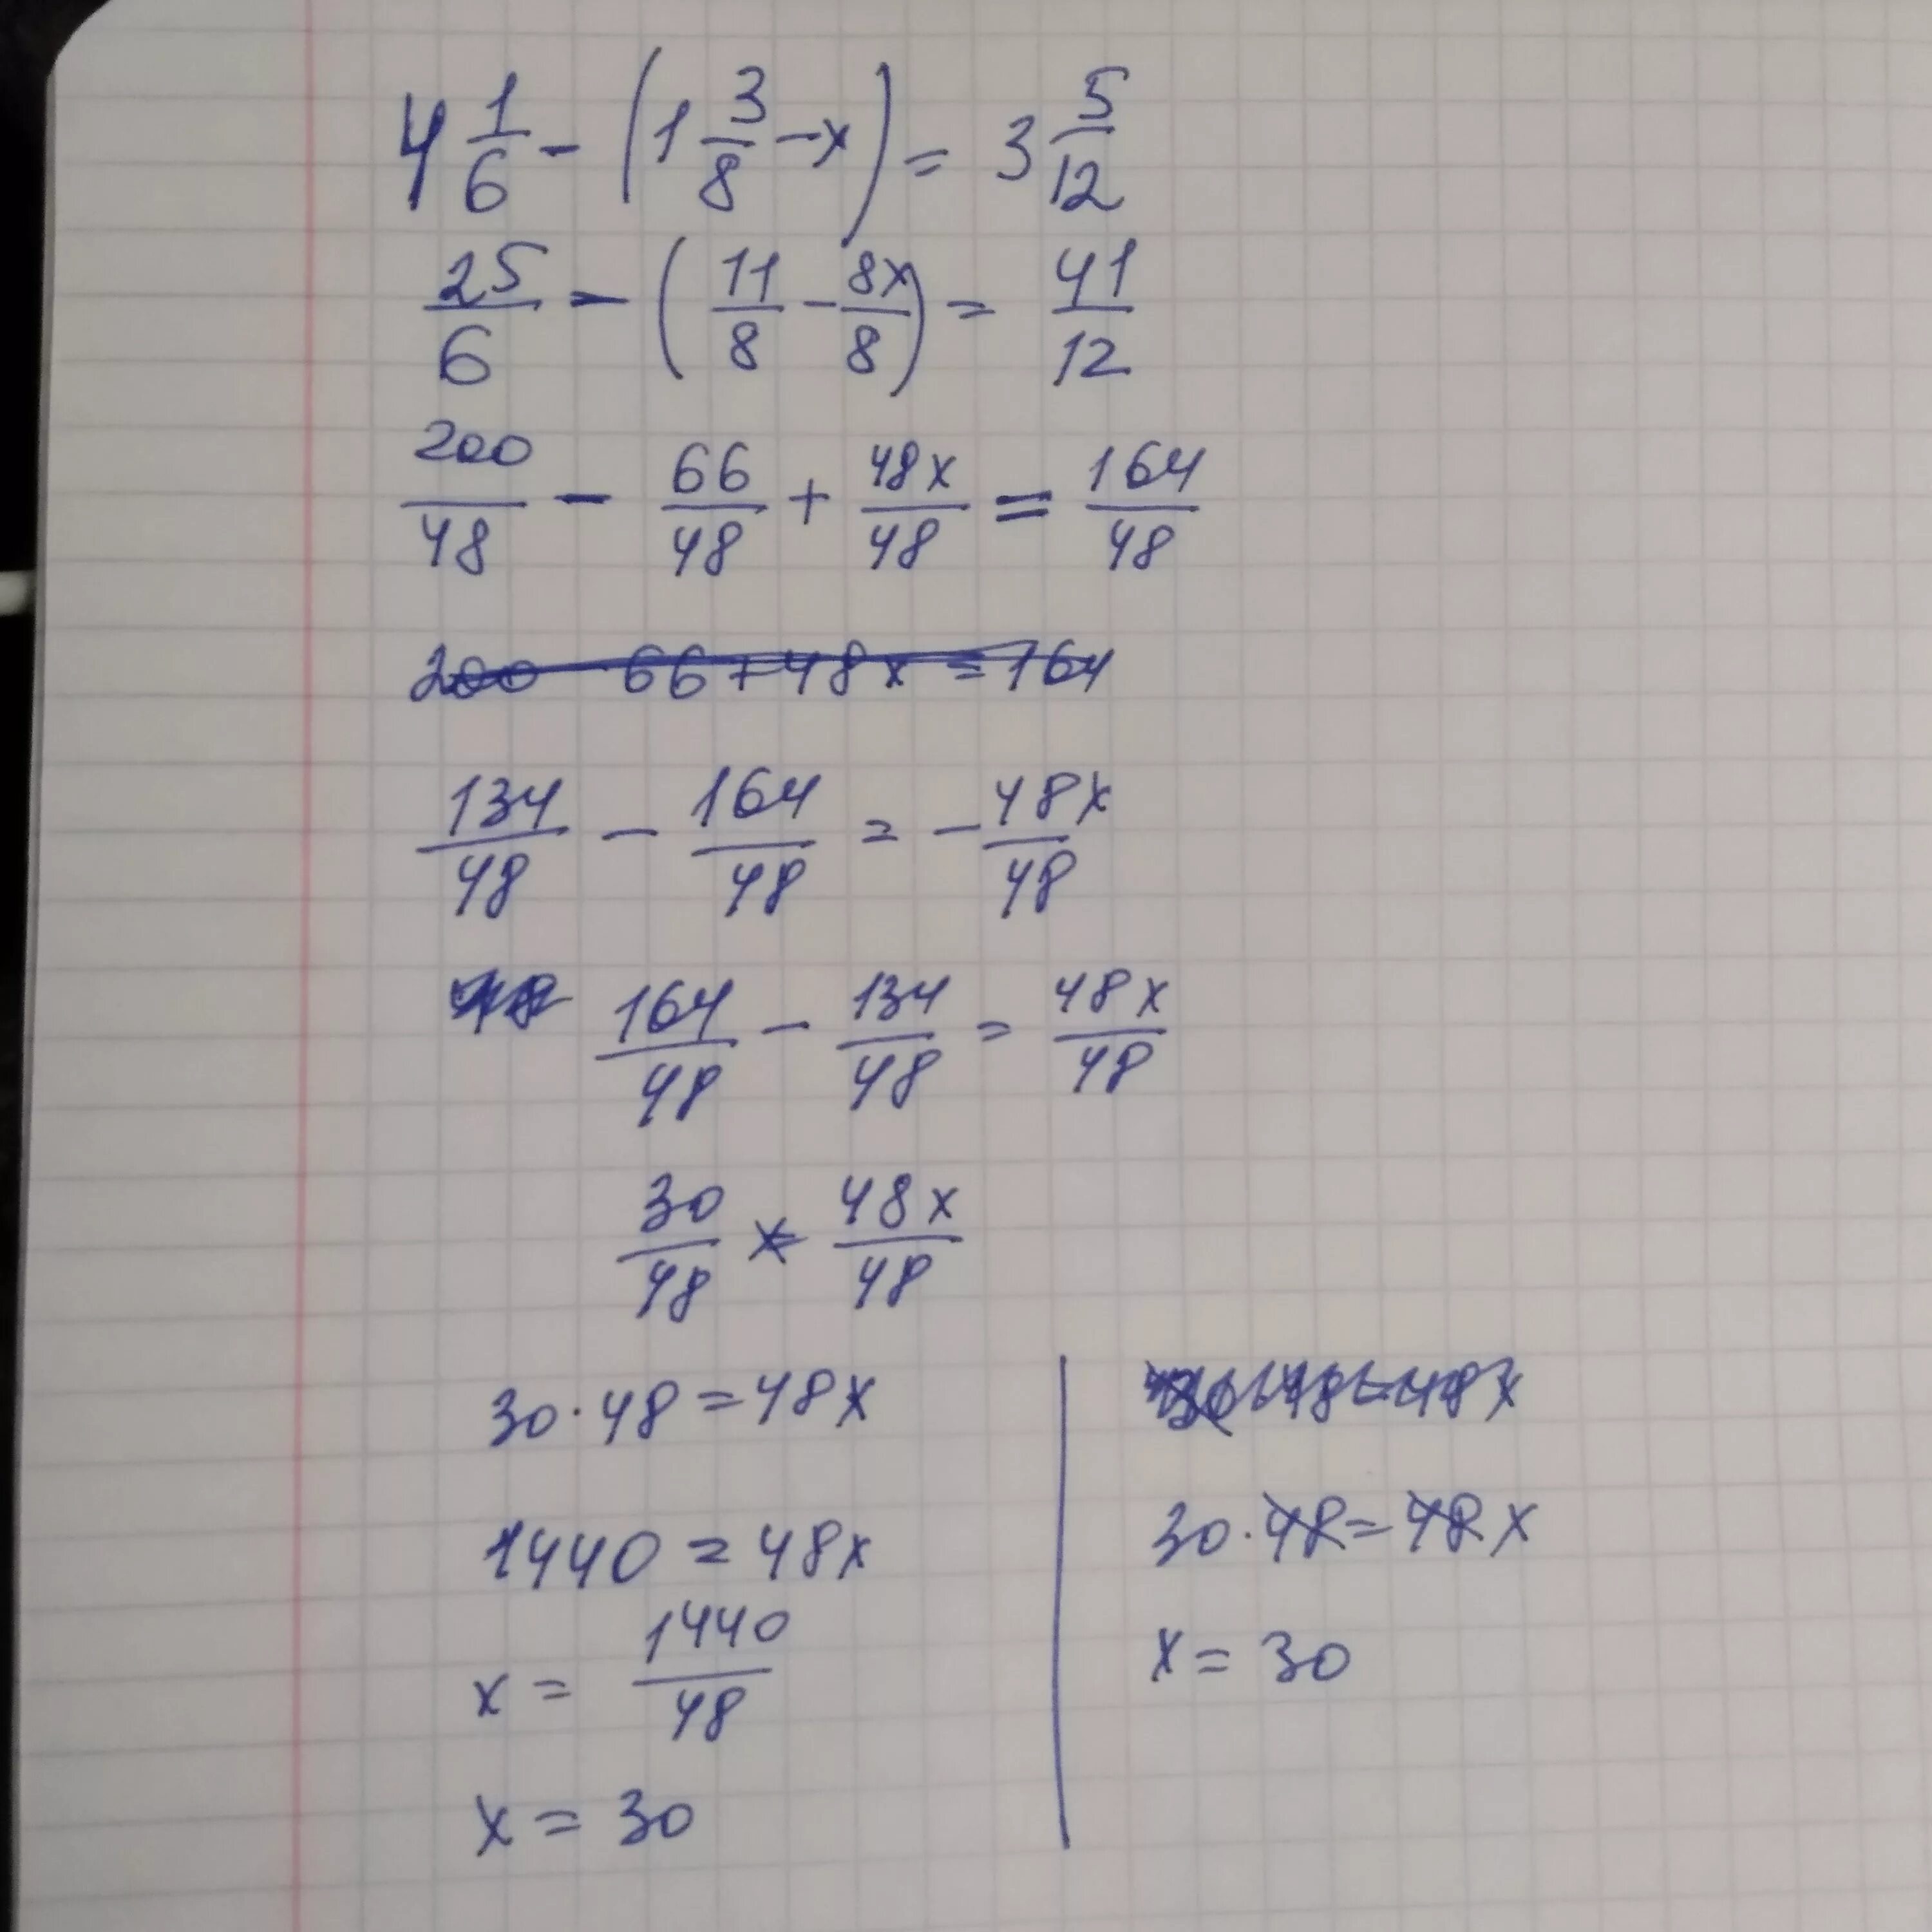 4 1/6 - (1 3/8 - x) = 3 5/12
25/6 - (11/8 - 8x/8) = 41/12
200/48 - 66/48 + 48x/48 = 164/48
200 66 + 48x = 164
134/48 - 164/48 = - 48x/48
48 164/48 - 134/48 = 48x/48
30/48 = 48x/48
30 · 48 = 48x
1440 = 48x
x = 1440/48
x = 30
30 · 48 = 48x
30 · 48 = 48x
x = 30